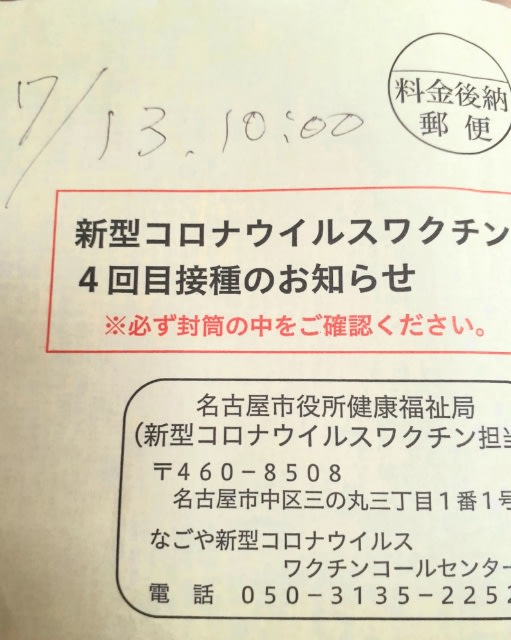 7/13. 10:00
料金後納
郵便
新型コロナウイルスワクチン
4回目接種のお知らせ
※必ず封筒の中をご確認ください。
名古屋市役所健康福祉局
(新型コロナウイルスワクチン担当
〒460-8508
名古屋市中区三の丸三丁目1番1号
なごや新型コロナウイルス
ワクチンコールセンター
電話 050-3135-2252